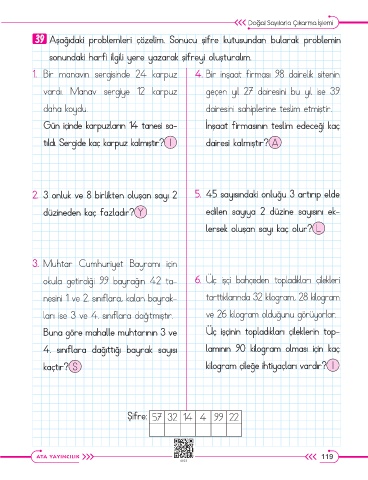 Doğal Sayılarla Çıkarma İşlemi
39 Aşağıdaki problemleri çözelim. Sonucu şifre kutusundan bularak problemin
sonundaki harfi ilgili yere yazarak şifreyi oluşturalım.
1. Bir manavın sergisinde 24 karpuz
vardı. Manav sergiye 12 karpuz
daha koydu.
Gün içinde karpuzların 14 tanesi sa-
tıldı. Sergide kaç karpuz kalmıştır? İ
2. 3 onluk ve 8 birlikten oluşan sayı 2
düzineden kaç fazladır? Y
3. Muhtar Cumhuriyet Bayramı için
okula getirdiği 99 bayrağın 42 ta-
nesini 1 ve 2. sınıflara, kalan bayrak-
ları ise 3 ve 4. sınıflara dağıtmıştır.
Buna göre mahalle muhtarının 3 ve
4. sınıflara dağıttığı bayrak sayısı
kaçtır? S
4. Bir inşaat firması 98 dairelik sitenin
geçen yıl 27 dairesini bu yıl ise 39
dairesini sahiplerine teslim etmiştir.
İnşaat firmasının teslim edeceği kaç
dairesi kalmıştır? A
5. 45 sayısındaki onluğu 3 artırıp elde
edilen sayıya 2 düzine sayısını ek-
lersek oluşan sayı kaç olur? L
6. Üç işçi bahçeden topladıkları çilekleri
tarttıklarında 32 kilogram, 28 kilogram
ve 26 kilogram olduğunu görüyorlar.
Üç işçinin topladıkları çileklerin top-
lamının 90 kilogram olması için kaç
kilogram çileğe ihtiyaçları vardır? İ
Şifre: 57 32 14 4 99 22
ATA YAYINCILIK
119